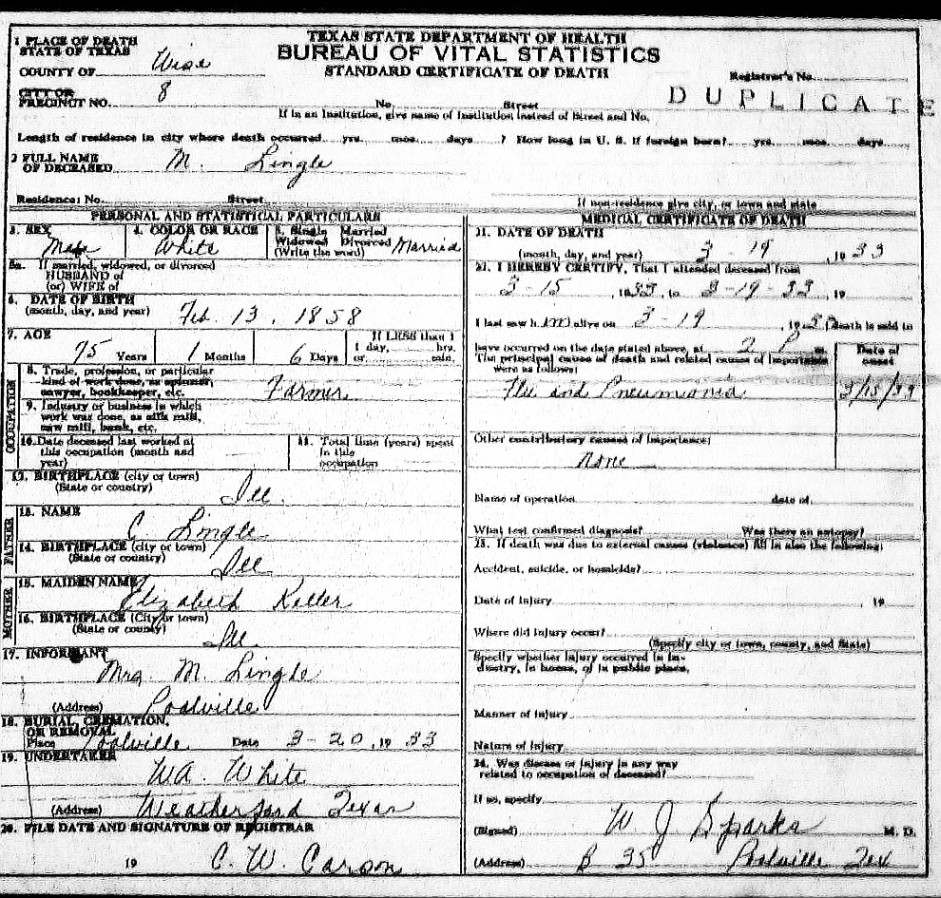 TEXAS STATE DEPARTMENT OF HEALTH
BUREAU OF VITAL STATISTICS
STANDARD CERTIFICATE OF DEATH
1 PLACE OF DEATH
STATE OF TEXAS
COUNTY OF Wise
CITY OR
PRECINCT NO. 8
Registrar's No.
DUPLICATE
No. Street
If in an institution, give name of institution instead of Street and No.
Length of residence in city where death occurred yrs. mos. days ? How long in U. S. if foreign born? yrs. mos. days
2 FULL NAME
OF DECEASED M. Lingle
Residence: No. Street If non-residence give city, or town and state
PERSONAL AND STATISTICAL PARTICULARS
3. SEX Male
4. COLOR OR RACE White
5. Single Married
Widowed Divorced
(Write the word) Married
5a. If married, widowed, or divorced
HUSBAND of
(or) WIFE of
6. DATE OF BIRTH
(month, day, and year) Feb. 13, 1858
7. AGE
75 Years 1 Months 6 Days
If LESS than 1
1 day, hrs.
or min.
OCCUPATION
8. Trade, profession, or particular
kind of work done, as spinner,
sawyer, bookkeeper, etc. Farmer
9. Industry or business in which
work was done, as silk mill,
saw mill, bank, etc.
10. Date deceased last worked at
this occupation (month and
year)
11. Total time (years) spent
in this
occupation
12. BIRTHPLACE (city or town)
(State or country) Ill.
FATHER
13. NAME
C Lingle
14. BIRTHPLACE (city or town)
(State or country) Ill
MOTHER
15. MAIDEN NAME
Elizabeth Keller
16. BIRTHPLACE (City or town)
(State or county) Ill
17. INFORMANT
Mrs. M. Lingle
(Address) Poolville
18. BURIAL, CREMATION,
OR REMOVAL
Place Poolville Date 3-20, 1933
19. UNDERTAKER
W.A. White
(Address) Weatherford Texas
20. FILE DATE AND SIGNATURE OF REGISTRAR
19 C. W. Carson
MEDICAL CERTIFICATE OF DEATH
21. DATE OF DEATH
(month, day, and year) 3-19, 1933
22. I HEREBY CERTIFY, That I attended deceased from
3-15, 1933, to 3-19-33, 19
I last saw him alive on 3-19, 1933, death is said to
have occurred on the date stated above, at 2 P m.
The principal cause of death and related causes of importance
were as follows:
Date of
onset
Flu and Pneumonia 3/15/33
Other contributory causes of importance:
None
Name of operation date of
What test confirmed diagnosis? Was there an autopsy?
23. If death was due to external causes (violence) fill in also the following:
Accident, suicide, or homicide?
Date of Injury , 19
Where did injury occur?
(Specify city or town, county, and State)
Specify whether injury occurred in in-
dustry, in home, or in public place.
Manner of Injury
Nature of Injury
24. Was disease or injury in any way
related to occupation of deceased?
If so, specify
(Signed) W J Sparks M. D.
(Address) Poolville Tex